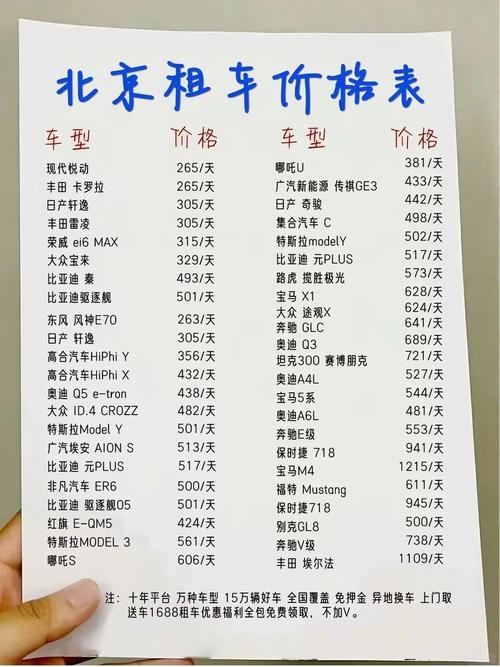 北京租车价格表
车型 价格
现代悦动 265/天
丰田 卡罗拉 265/天
日产轩逸 305/天
丰田雷凌 305/天
荣威 ei6 MAX 315/天
大众宝来 329/天
比亚迪 秦 493/天
比亚迪驱逐舰 501/天
东风 风神E70 263/天
日产 轩逸 305/天
高合汽车HiPhi Y 356/天
高合汽车HiPhi X 432/天
奥迪 Q5 e-tron 438/天
大众 ID.4 CROZZ 482/天
特斯拉Model Y 501/天
广汽埃安 AION S 513/天
比亚迪 元PLUS 517/天
非凡汽车 ER6 500/天
比亚迪 驱逐舰05 501/天
红旗 E-QM5 424/天
特斯拉MODEL 3 561/天
哪吒S 606/天
车型 价格
哪吒U 381/天
广汽新能源 传祺GE3 433/天
日产 奇骏 442/天
集合汽车 C 498/天
特斯拉modelY 502/天
比亚迪 元PLUS 517/天
路虎 揽胜极光 573/天
宝马 X1 628/天
大众 途观X 624/天
奔驰 GLC 641/天
奥迪 Q3 689/天
坦克300 赛博朋克 721/天
奥迪A4L 527/天
宝马5系 544/天
奥迪A6L 481/天
奔驰E级 553/天
保时捷 718 941/天
宝马M4 1215/天
福特 Mustang 611/天
保时捷718 945/天
别克GL8 500/天
奔驰V级 738/天
丰田 埃尔法 1109/天
注: 十年平台 万种车型 15万辆好车 全国覆盖 免押金 异地换车 上门取
送车1688租车优惠福利全包免费领取，不加V。